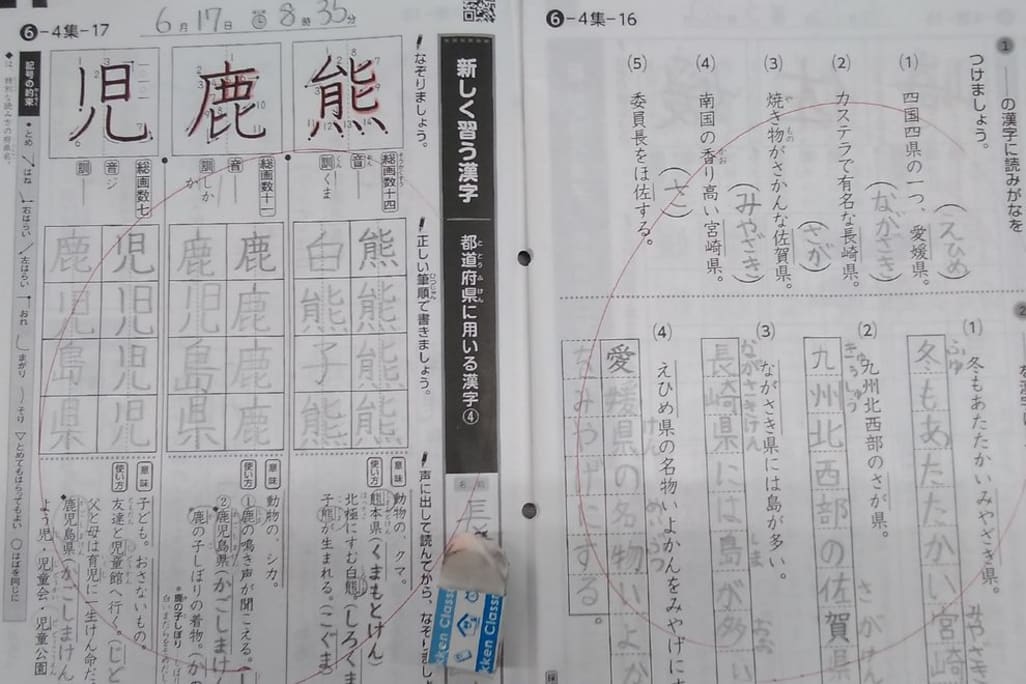 ❻-4集-16
①
の漢字に読みがなを
つけましょう。
(1) 四国四県の一つ、愛媛県。
(えひめ)
(2) カステラで有名な長崎県。
(ながさき)
(3) 焼き物がさかんな佐賀県。
やもの
(さが)
(4) 南国の香り高い宮崎県。
かお
(みやざき)
(5) 委員長をほ佐する。
(さ)
②
(1) 冬もあたたかいみやざき県。
ふゆ
冬もあたたかい宮崎
(2) 九州北西部のさが県。
きゅうしゅう
九州北西部の佐賀
(3) ながさき県には島が多い。
ながさきけん
しま
おお
長崎県には島が多い
(4) えひめ県の名物いよかんをみやげに
けん
めいぶつ
愛媛県の名物いよか
みやげにする。
❻-4集-17
6月17日 8時35分
新しく習う漢字
都道府県に用いる漢字④
とどうふけん
名前
なぞりましょう。
正しい筆順で書きましょう。
ひつじゅん
声に出して読んでから、なぞ
熊
総画数十四
音 ―
訓 くま
熊熊熊熊
白熊子熊
意味
動物の、クマ。
使い方
熊本県(くまもとけん)
北極にすむ白熊(しろくま
子熊が生まれる。(こぐま
鹿
総画数十一
音 ―
訓 しか
か
鹿鹿鹿鹿
鹿児島県
意味
動物の、シカ。
使い方
①鹿の鳴き声が聞こえる。
②鹿児島県(かごしまけ
鹿の子しぼりの着物。(か
鹿の子しぼり
児
総画数七
音 ジ
訓 ―
児児児児
鹿児島県
意味
子ども。おさないもの。
使い方
友達と児童館へ行く。(じど
父と母は育児に一生けん命だ
鹿児島県(かごしまけん
よう児・児童会・児童公園
記号の約束
とめ
はね
右はらい
左はらい
おれ
まがり
そり
▽とめてもはらってもよい
○はばを同じに